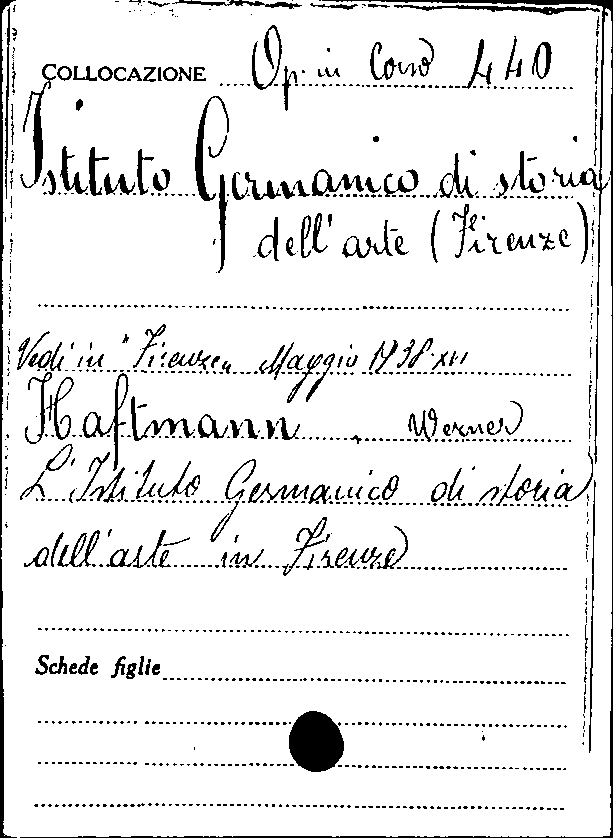 COLLOCAZIONE Op. in Corso 440
Istituto Germanico di storia
dell'arte (Firenze)
Vedi in "Firenze" Maggio 1938-XVI
Haftmann, Werner
L'Istituto Germanico di storia
dell'arte in Firenze
Schede figlie